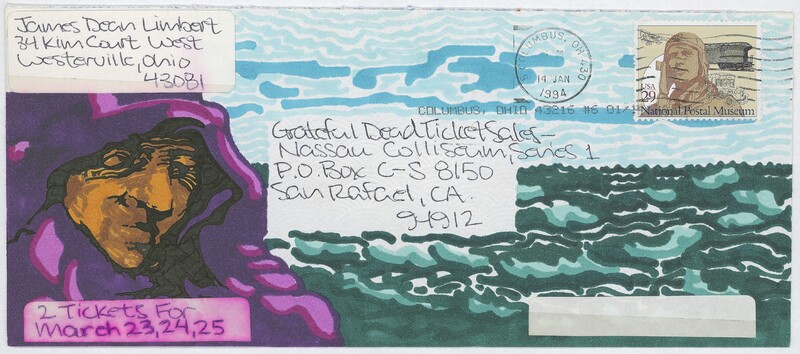 James Dean Limbert
34 Kim Court West
Westerville, Ohio
43081
COLUMBUS, OH 430
14 JAN
1994
COLUMBUS, OHIO 43216 #6 01/1
USA
29
National Postal Museum
Grateful Dead Ticket Sales-
Nassau Colliseum, Series 1
P.O. Box C-S 8150
San Rafael, CA.
94912
2 Tickets For
March 23,24,25